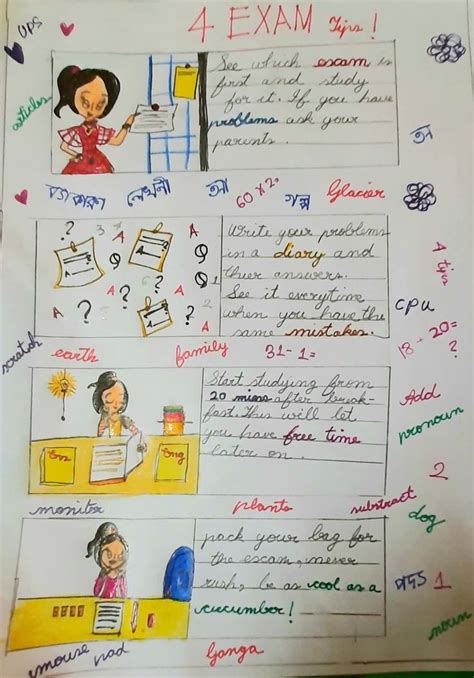 UPS
4 EXAM Tips!
articles
See which escam is
first and study
for it. If you have
problems ask your
parents.
CU
অ
ব্যাকরণ লেখনী আ 60 x 2= গল্প Glacier
Write your problems
in a diary and
thier answers.
See it everytime
when you have the
same mistakes.
4 tips
CPU
18 + 20=
?
scratch
earth family 31-1=
Start studying from
20 mins after break-
fast. This will let
you have free time
later on.
Eng
Add
pronoun
2
monitor plants substract
dog
pack your bag for
the escam, never
rush, be as cool as a
cucumber!
1
noun
mouse pad Ganga